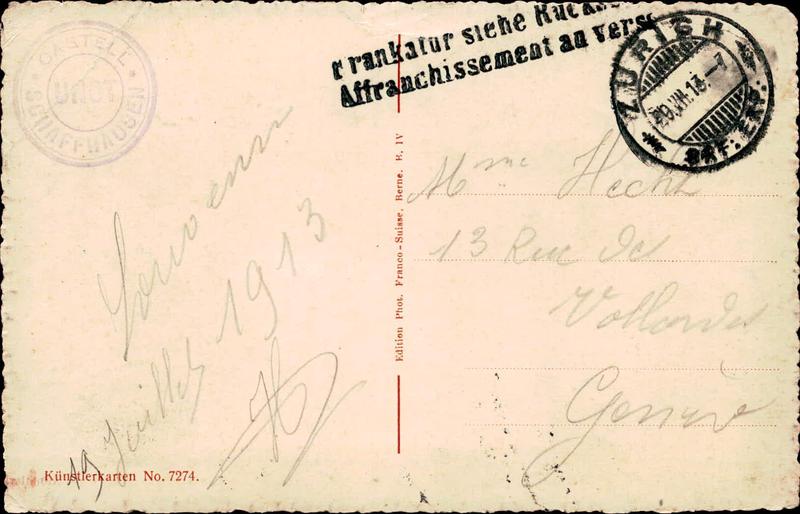 CASTELL
UNOT
SCHAFFHAUSEN
Frankatur siehe Rücks
Affranchissement au verso
ZÜRICH
20.VII.13.-7
BRF. EXP.
Souvenir
19 Juillet 1913
Edition Phot. Franco-Suisse, Berne. B. IV
Mme Hecht
13 Rue de
Vollandes
Genève
Künstlerkarten No. 7274.